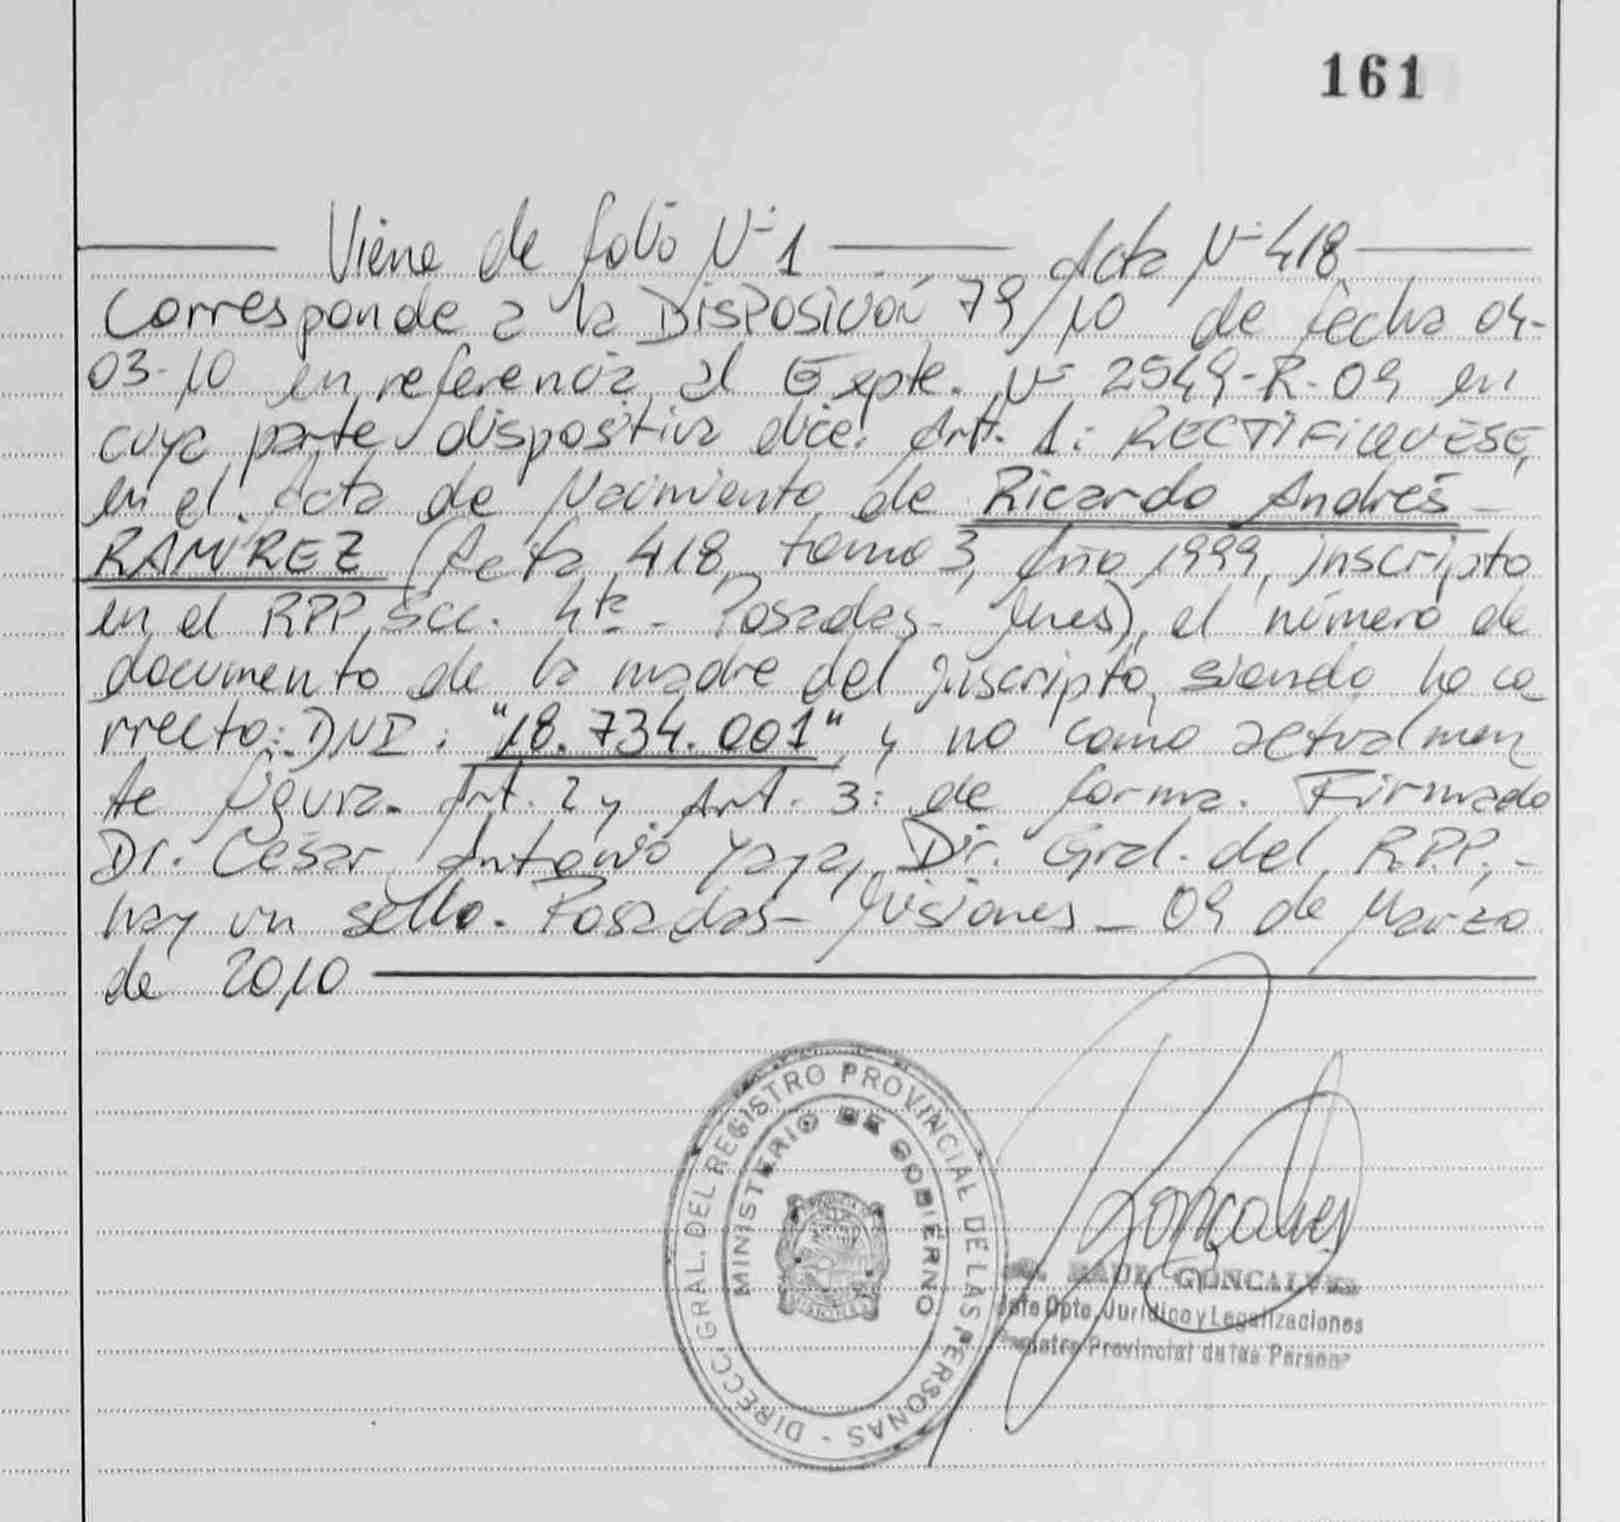 161
Viene de folio Nº 1 Acta Nº 418
Corresponde a la Disposición 79/10 de fecha 04-
03-10 en referencia al Expte. Nº 2549-R-09 en
cuya parte dispositiva dice: Art. 1: RECTIFIQUESE,
en el Acta de Nacimiento de Ricardo Andrés -
RAMIREZ (Acta 418, tomo 3, Año 1999, inscripto
en el RPP, Sec. 4ta - Posadas - Mnes), el número de
documento de la madre del inscripto, siendo lo co
rrecto: DNI: "18.734.001" y no como actualmen
te figura. Art. 2 y Art. 3: de forma. Firmado
Dr. César Antonio Yaya, Dir. Gral. del R.P.P.-
hay un sello. Posadas - Misiones - 09 de Marzo
de 2010
DIRECC. GRAL. DEL REGISTRO PROVINCIAL DE LAS PERSONAS -
MINISTERIO DE GOBIERNO
Gonçalves
RAUL GONCALVES
Jefe Dpto. Jurídico y Legalizaciones
Registro Provincial de las Personas